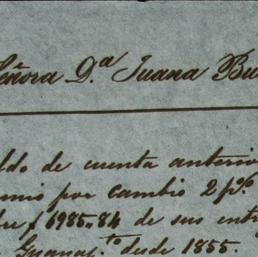 Señora D.ª Juana Bu
ldo de cuenta anterio
emio por cambio 2 p%
bre $ 6985.84 de sus ent
Guanaj.to desde 1855.